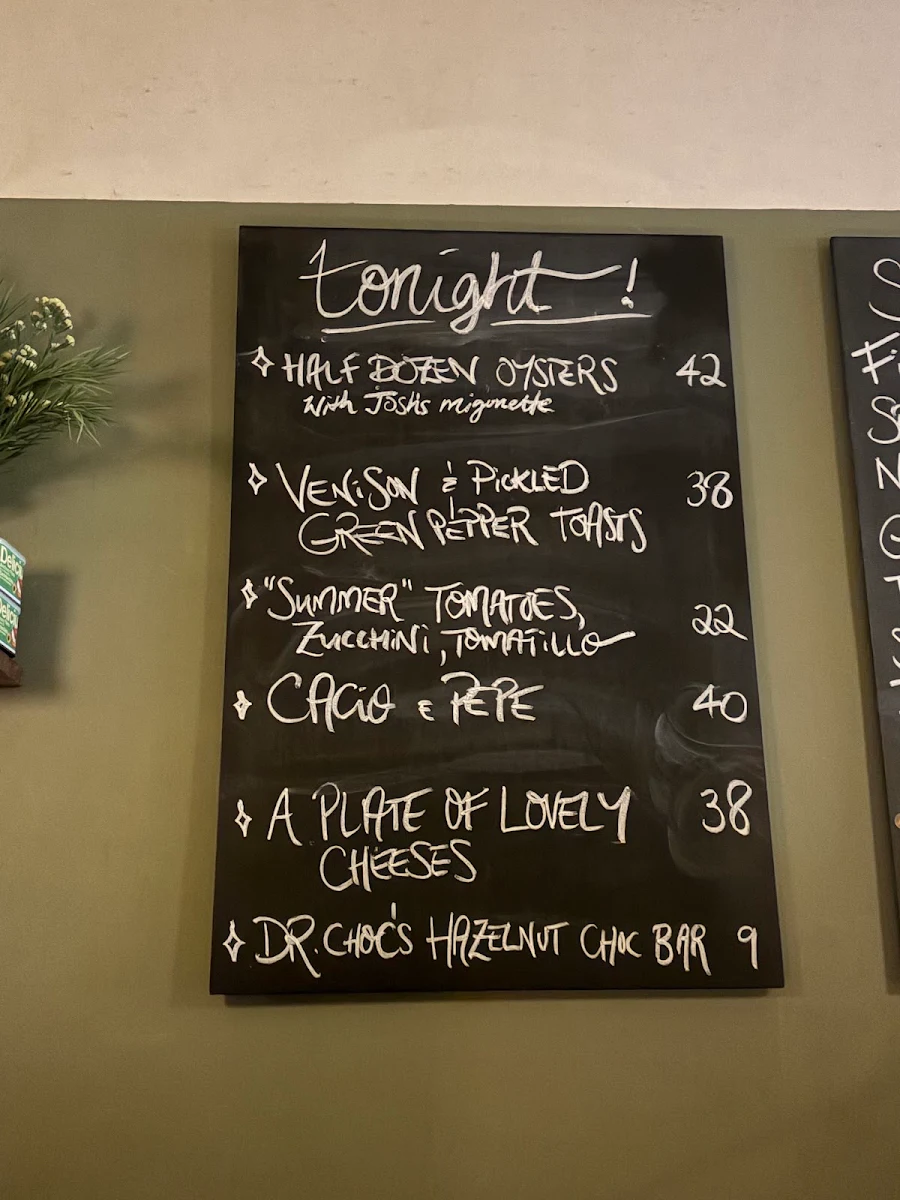 tonight!
HALF DOZEN OYSTERS 42
With Josh's migonette
VENISON & PICKLED 38
GREEN PEPPER TOASTS
"SUMMER" TOMATOES,
ZUCCHINI, TOMATILLO 22
CACIO E PEPE 40
A PLATE OF LOVELY 38
CHEESES
DR. CHOC'S HAZELNUT CHOC BAR 9